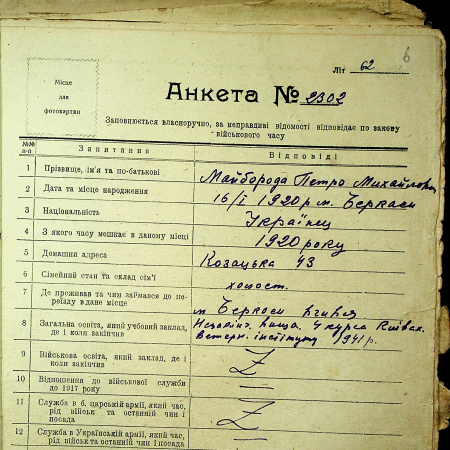 6
Літ 62
Місце
для
фотокартки
Анкета № 2302
Заповнюється власноручно, за неправдиві відомості відповідає по закону
військового часу
№№ п-п Запитання Відповіді
1 Прізвище, ім'я та по-батькові Майборода Петро Михайлович
2 Дата та місце народження 16/I 1920 р м. Черкаси
3 Національність Українец
4 З якого часу мешкає в даному місці 1920 року
5 Домашня адреса Козацька 43
6 Сімейний стан та склад сім'ї холост.
7 Де проживав та чим займався до пе-
реїзду в дане місце м. Черкаси
8 Загальна освіта, який учбовий заклад,
де і коли закінчив Незакінч. вища. 4 курса Київск.
Ветерн. інституту 1941 р.
9 Військова освіта, який заклад, де і
коли закінчив Z
10 Відношення до військової служби
до 1917 року
11 Служба в б. царській армії, який час,
рід військ та останній чин і
посада Z
12 Служба в Українській армії, який час,
рід військ та останній чин і посада